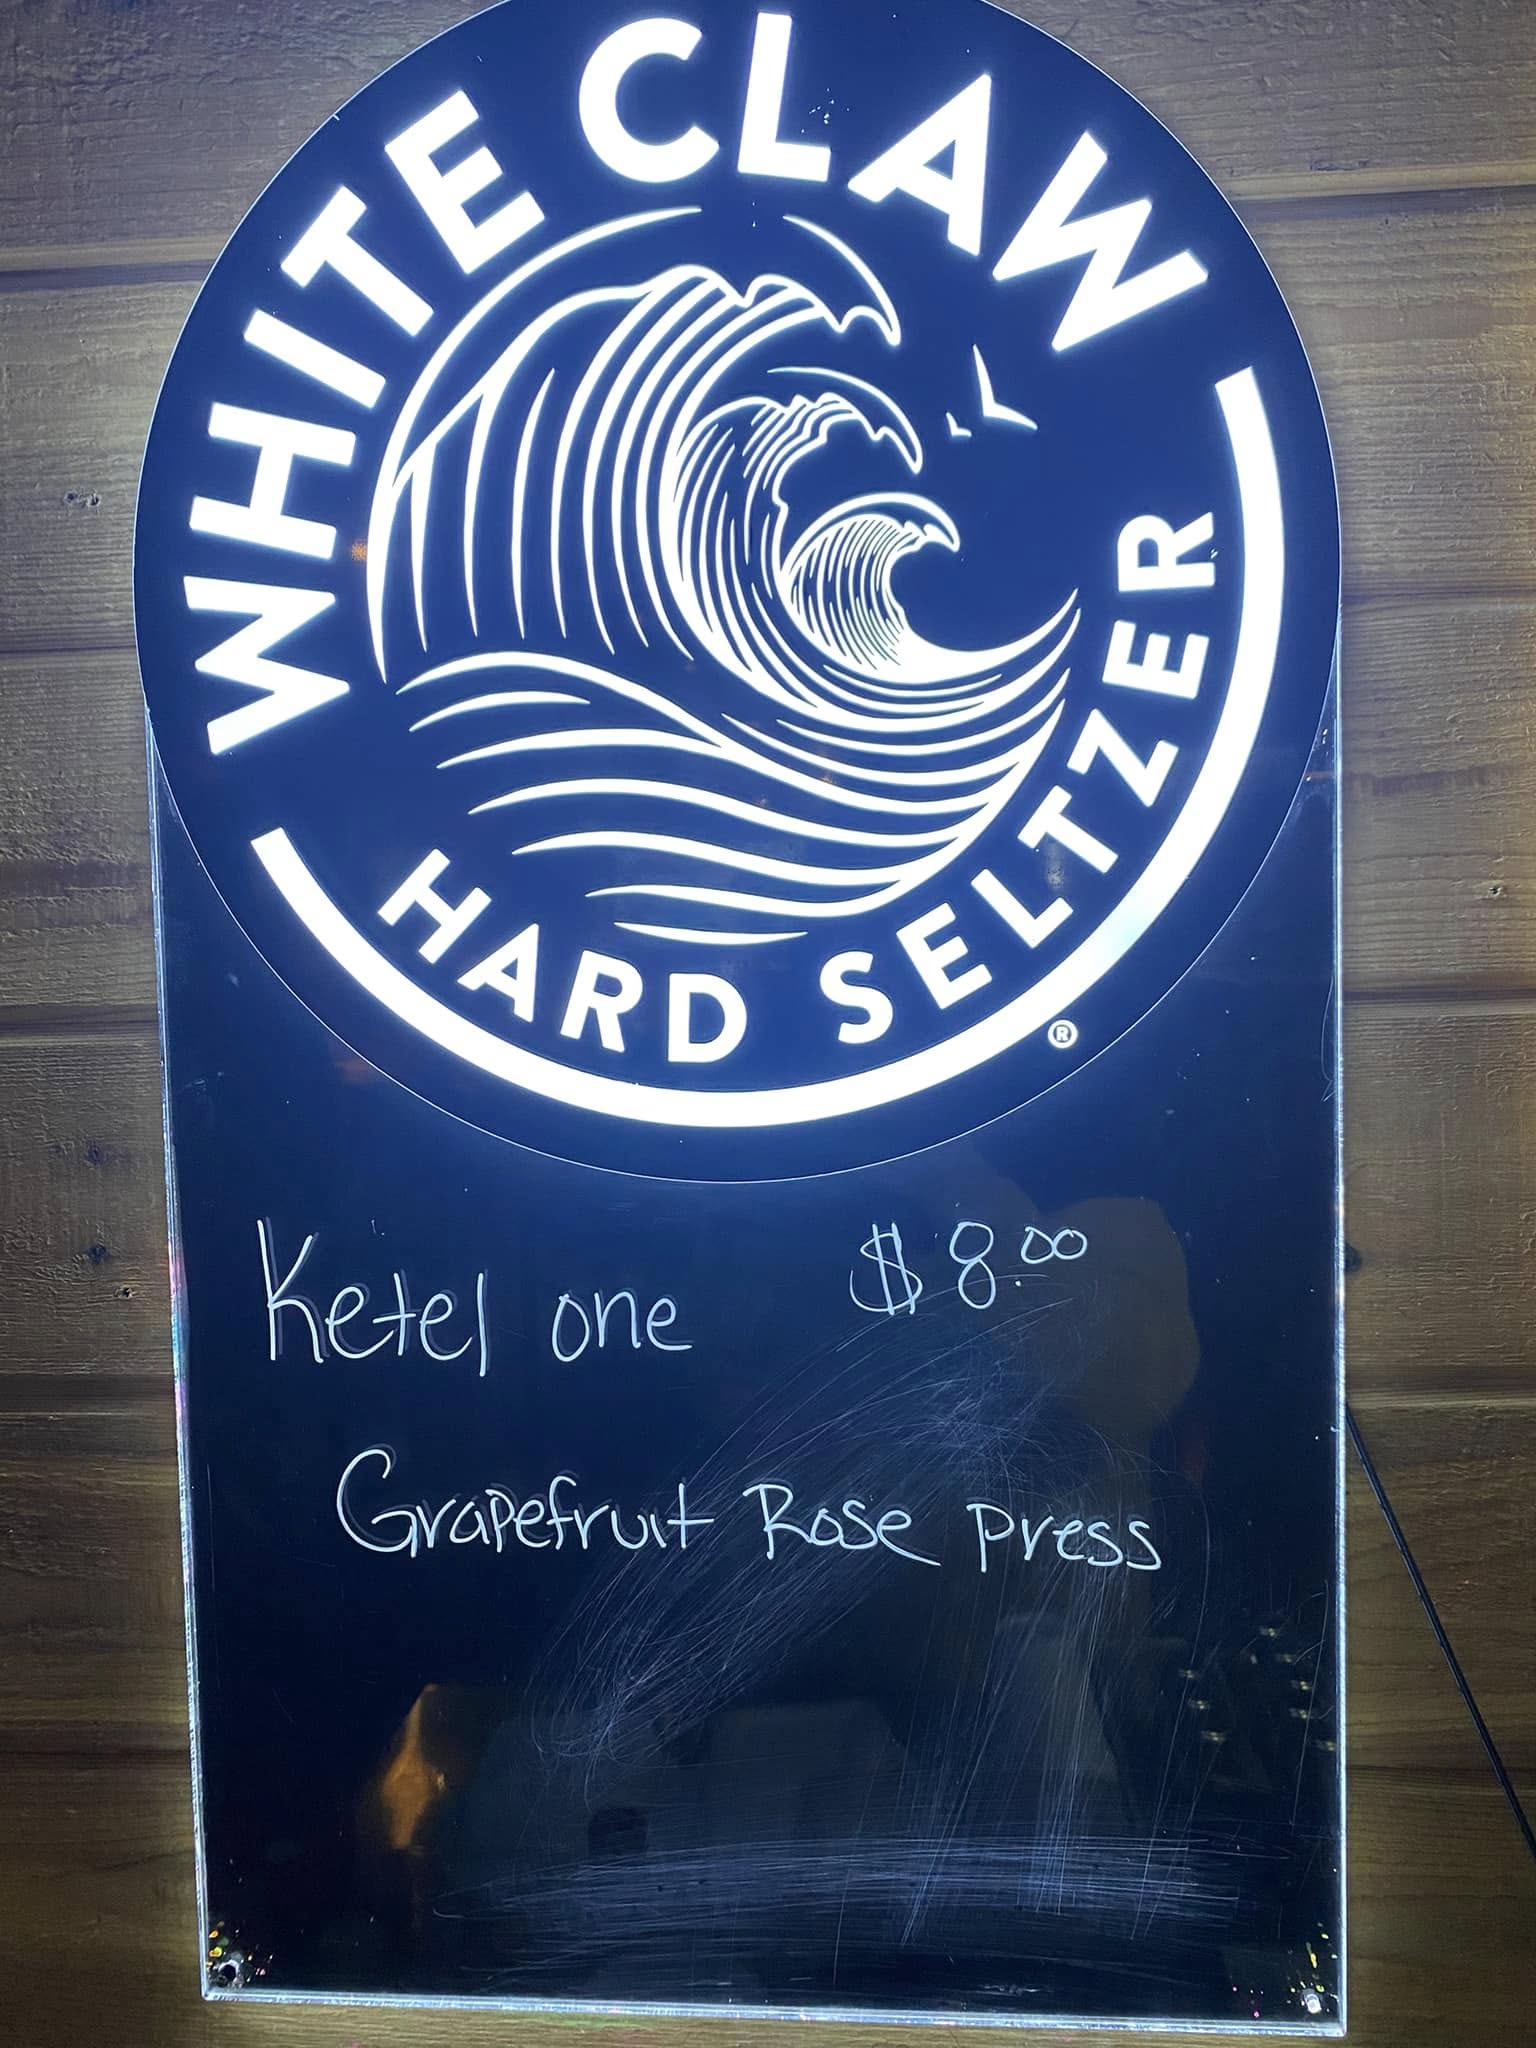 WHITE CLAW
HARD SELTZER
®
Ketel one $8.00
Grapefruit Rose press